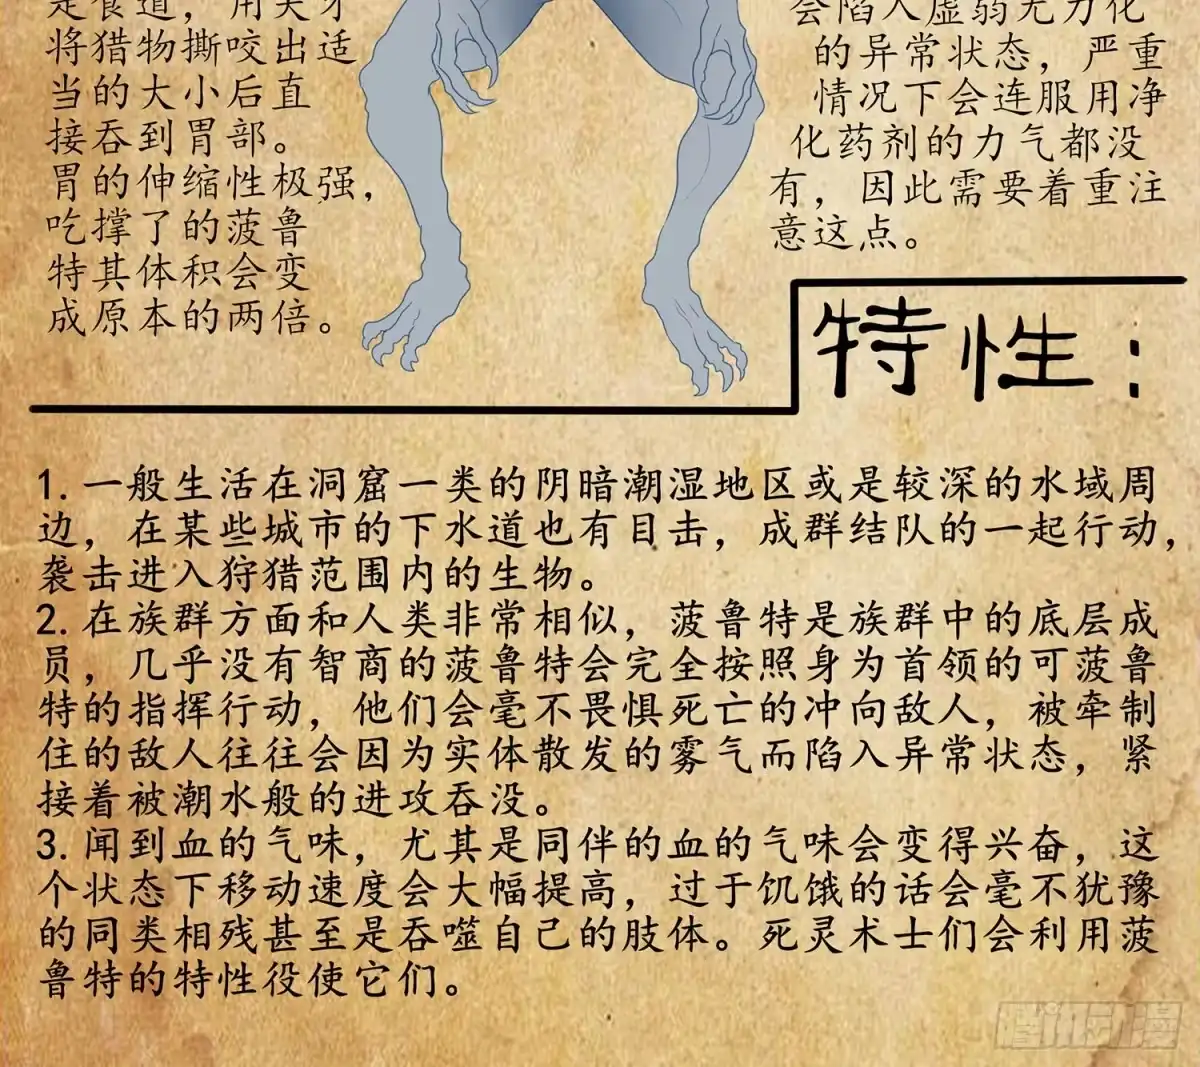 是食道，用尖牙
将猎物撕咬出适
当的大小后直
接吞到胃部。
胃的伸缩性极强，
吃撑了的菠鲁
特其体积会变
成原本的两倍。
会陷入虚弱无力化
的异常状态，严重
情况下会连服用净
化药剂的力气都没
有，因此需要着重注
意这点。
特性：
1. 一般生活在洞窟一类的阴暗潮湿地区或是较深的水域周
边，在某些城市的下水道也有目击，成群结队的一起行动，
袭击进入狩猎范围内的生物。
2. 在族群方面和人类非常相似，菠鲁特是族群中的底层成
员，几乎没有智商的菠鲁特会完全按照身为首领的可菠鲁
特的指挥行动，他们会毫不畏惧死亡的冲向敌人，被牵制
住的敌人往往会因为实体散发的雾气而陷入异常状态，紧
接着被潮水般的进攻吞没。
3. 闻到血的气味，尤其是同伴的血的气味会变得兴奋，这
个状态下移动速度会大幅提高，过于饥饿的话会毫不犹豫
的同类相残甚至是吞噬自己的肢体。死灵术士们会利用菠
鲁特的特性役使它们。
腾讯动漫